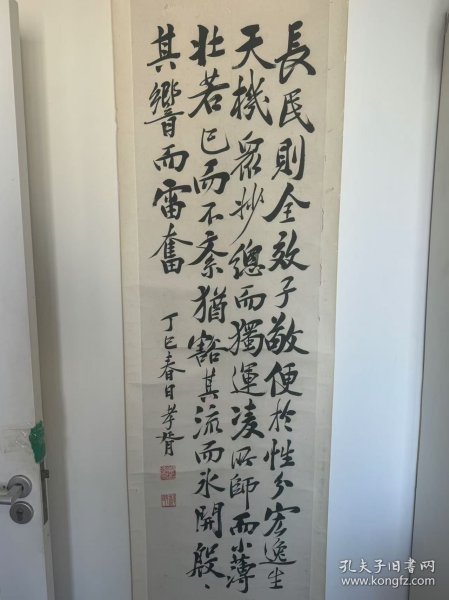 長民則全效子敬便於性分宏逸生
天機眾妙總而獨運凌所師而小薄
壯若已而不紊猶豁其流而氷開殷、
其響而雷奮
丁巳春日孝胥
孔夫子旧书网
www.kongfz.com